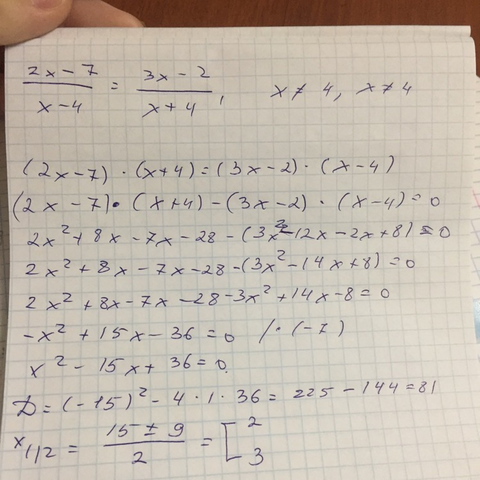 (2x-7)/(x-4) = (3x-2)/(x+4), x ≠ 4, x ≠ 4
(2x-7)·(x+4)=(3x-2)·(x-4)
(2x-7)·(x+4)-(3x-2)·(x-4)=0
2x²+8x-7x-28-(3x²-12x-2x+8)=0
2x²+8x-7x-28-(3x²-14x+8)=0
2x²+8x-7x-28-3x²+14x-8=0
-x²+15x-36=0 /·(-7)
x²-15x+36=0.
D=(-15)²-4·1·36=225-144=81
x1/2 = (15±9)/2 = [2
3